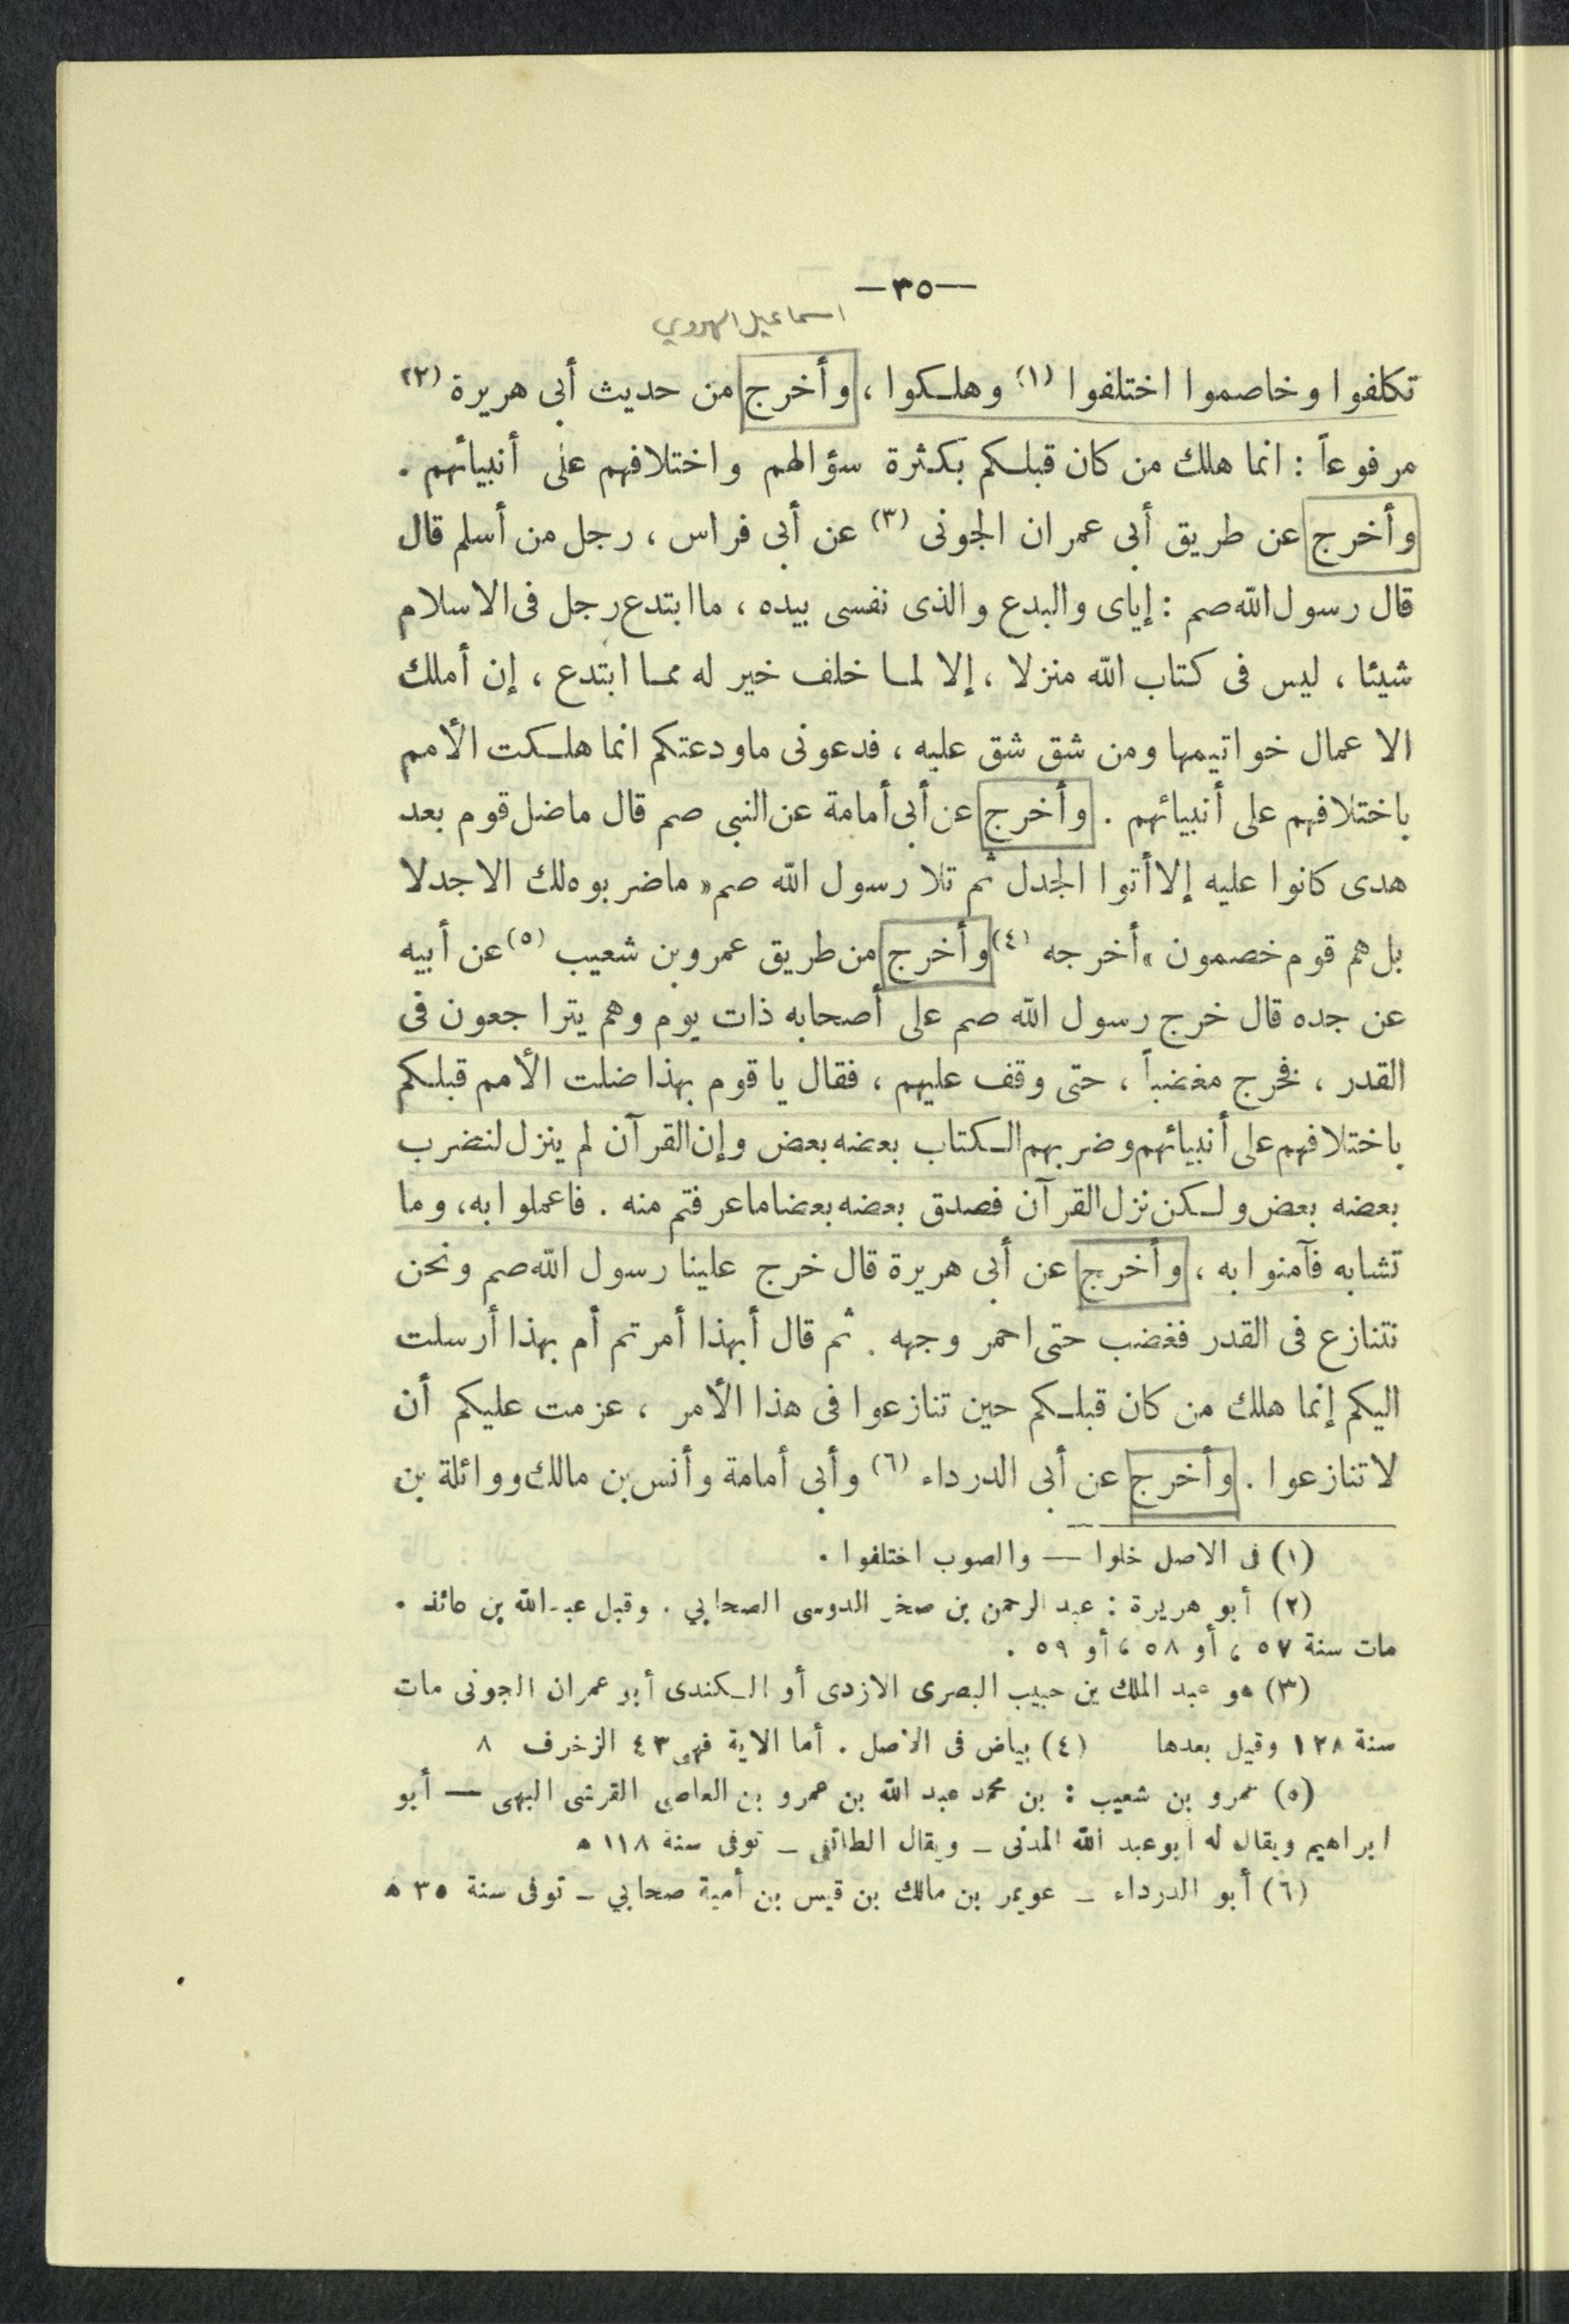 —٣٥—
اسماعيل الهروي
تكلفوا وخاصموا اختلفوا (١) وهلكوا ، وأخرج من حديث أبى هريرة (٢)
مرفوعاً : انما هلك من كان قبلكم بكثرة سؤالهم واختلافهم على أنبيائهم .
وأخرج عن طريق أبى عمران الجونى (٣) عن أبى فراس ، رجل من أسلم قال
قال رسول الله صم : إياى والبدع والذى نفسى بيده ، ما ابتدع رجل فى الاسلام
شيئا ، ليس فى كتاب الله منزلا ، إلا لما خلف خير له مما ابتدع ، إن أملك
الاعمال خواتيمها ومن شق شق عليه ، فدعونى ماودعتكم انما هلكت الأمم
باختلافهم على أنبيائهم . وأخرج عن أبى أمامة عن النبى صم قال ماضل قوم بعد
هدى كانوا عليه إلا أتوا الجدل ثم تلا رسول الله صم « ماضربوه لك الا جدلا
بل هم قوم خصمون » أخرجه (٤) وأخرج من طريق عمرو بن شعيب (٥) عن أبيه
عن جده قال خرج رسول الله صم على أصحابه ذات يوم وهم يتراجعون فى
القدر ، فخرج مغضباً ، حتى وقف عليهم ، فقال يا قوم بهذا ضلت الأمم قبلكم
باختلافهم على أنبيائهم وضربهم الكتاب بعضه بعض وإن القرآن لم ينزل لنضرب
بعضه بعض ولكن نزل القرآن فصدق بعضه بعضا ماعرفتم منه . فاعملوا به ، وما
تشابه فآمنوا به ، وأخرج عن أبى هريرة قال خرج علينا رسول الله صم ونحن
نتنازع فى القدر فغضب حتى احمر وجهه . ثم قال أبهذا أمرتم أم بهذا أرسلت
اليكم إنما هلك من كان قبلكم حين تنازعوا فى هذا الأمر ، عزمت عليكم أن
لا تنازعوا . وأخرج عن أبى الدرداء (٦) وأبى أمامة وأنس بن مالك ووائلة بن
(١) فى الاصل خلوا — والصوب اختلفوا .
(٢) أبو هريرة : عبد الرحمن بن صخر الدوسى الصحابي . وقيل عبد الله بن عائذ .
مات سنة ٥٧ ، أو ٥٨ ، أو ٥٩ .
(٣) هو عبد الملك بن حبيب البصرى الازدى أو الكندى أبو عمران الجونى مات
سنة ١٢٨ وقيل بعدها (٤) بياض فى الاصل . أما الاية فهى ٤٣ الزخرف ٨
(٥) عمرو بن شعيب : بن محمد عبد الله بن عمرو بن العاصى القرشى السهمى — أبو
ابراهيم ويقال له ابو عبد الله المدنى — ويقال الطائفى — توفى سنة ١١٨ ه
(٦) أبو الدرداء — عويمر بن مالك بن قيس بن أمية صحابي — توفى سنة ٣٥ ه